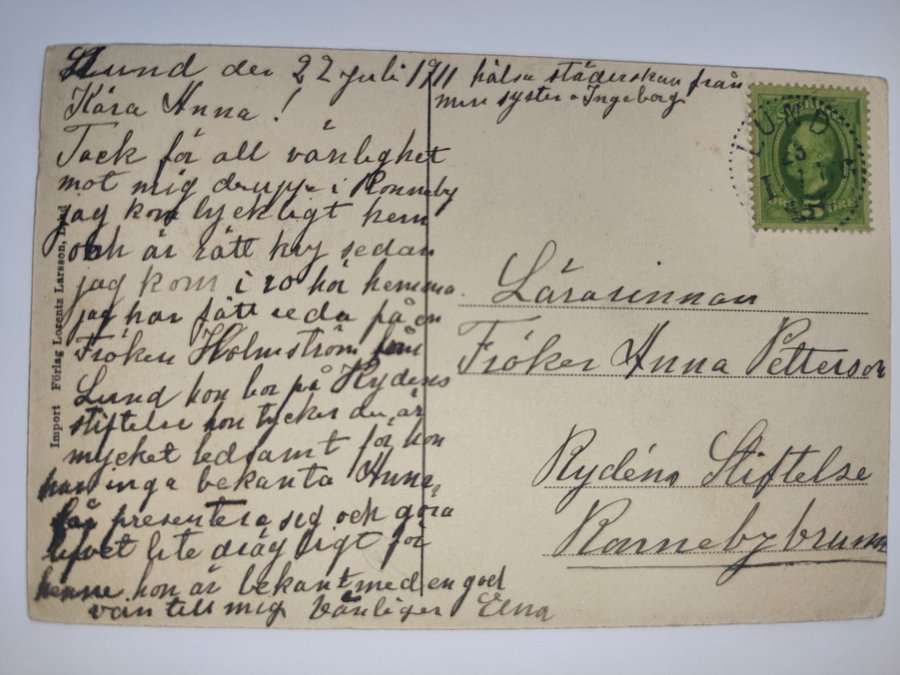 Lund den 22 Juli 1911
Kära Anna!
Tack för all vänlighet
mot mig i Ronneby
jag kom lyckligt hem
och är rätt kry sedan
jag kom i ro hör hemma
jag har fått reda på en
Fröken Holmström från
Lund hon bor på Rydens
stiftelse hon tycker du är
mycket ledsamt för hon
har inga bekanta Anna
får presentera sig och göra
livet lite drägligt för
henne hon är bekant med en god
vän till mig Vänligen Elna
hälsa städerskan från
min syster Ingeborg
LUND
5 ÖRE
Lärarinnan
Fröken Anna Petterson
Rydéns Stiftelse
Ronnebybrunn
Import Förlag Lorentz Larsson, Lund